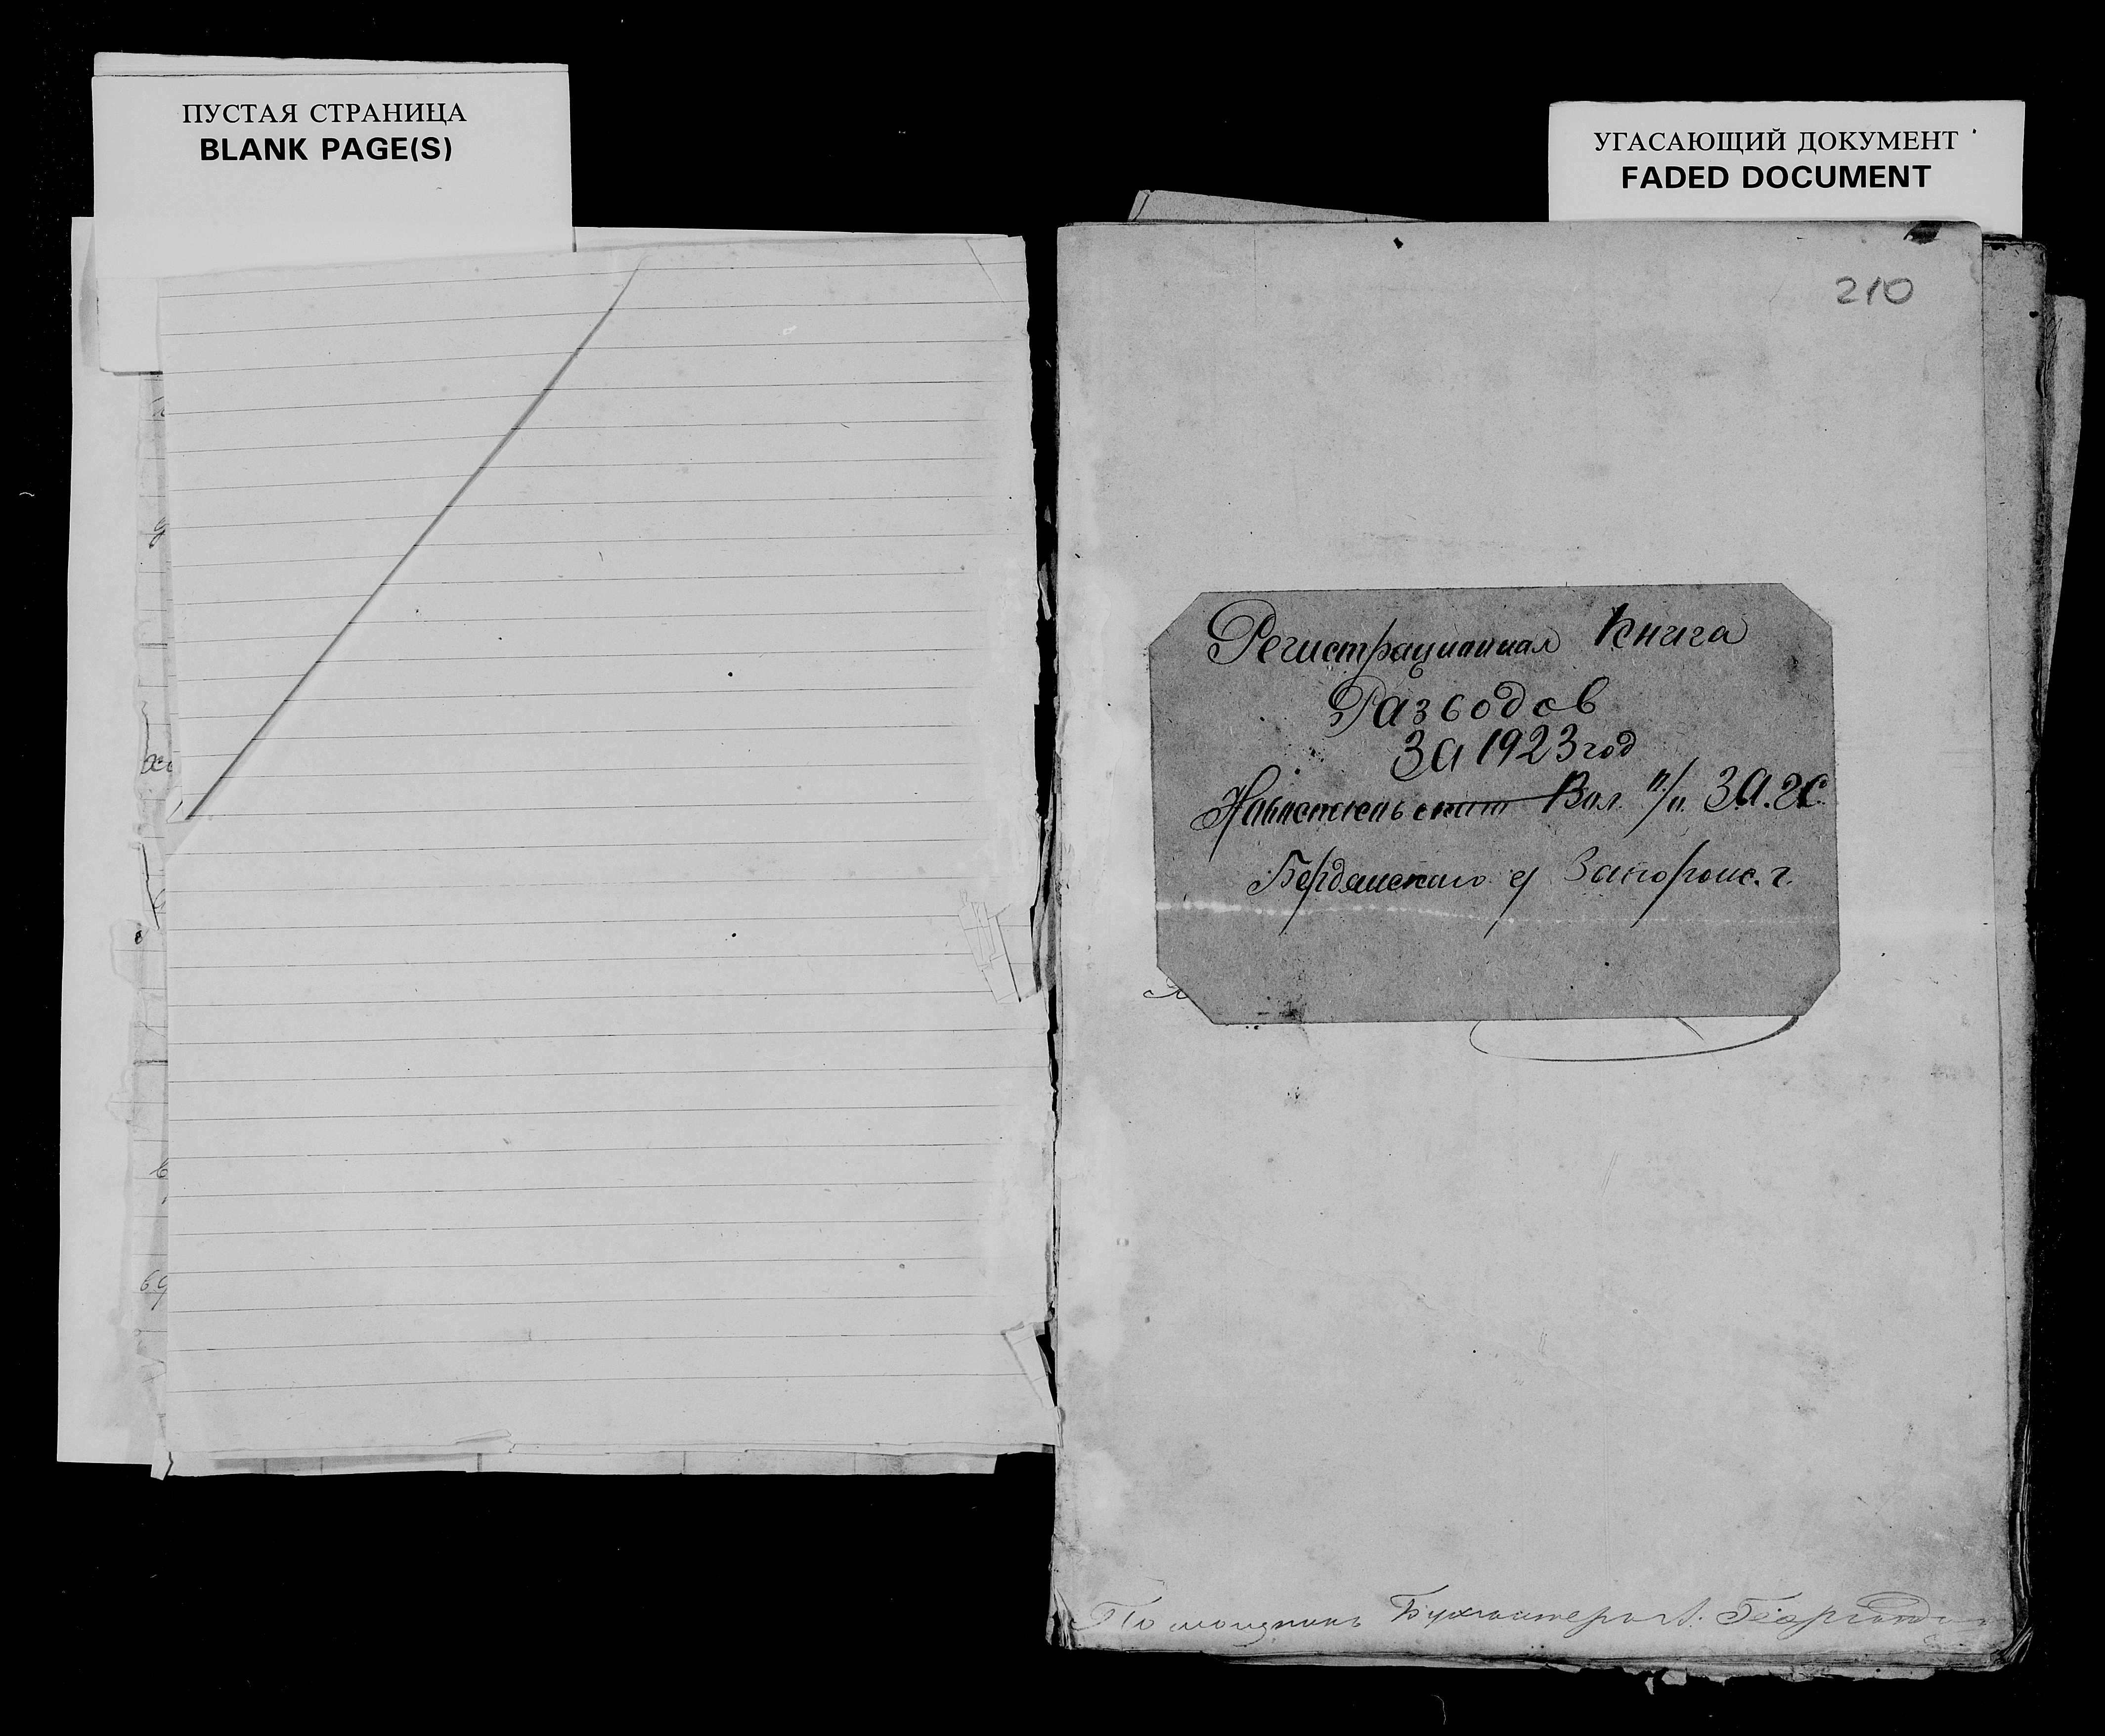 ПУСТАЯ СТРАНИЦА
BLANK PAGE(S)
УГАСАЮЩИЙ ДОКУМЕНТ
FADED DOCUMENT
210
Регистрационная Книга
Разводов
За 1923 год
Вол. п/п. ЗА.ГС.
Бердянскаго у Запорож. г.
Помощникъ Бухгалтера